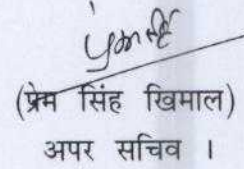 (प्रेम सिंह खिमाल)
अपर सचिव ।